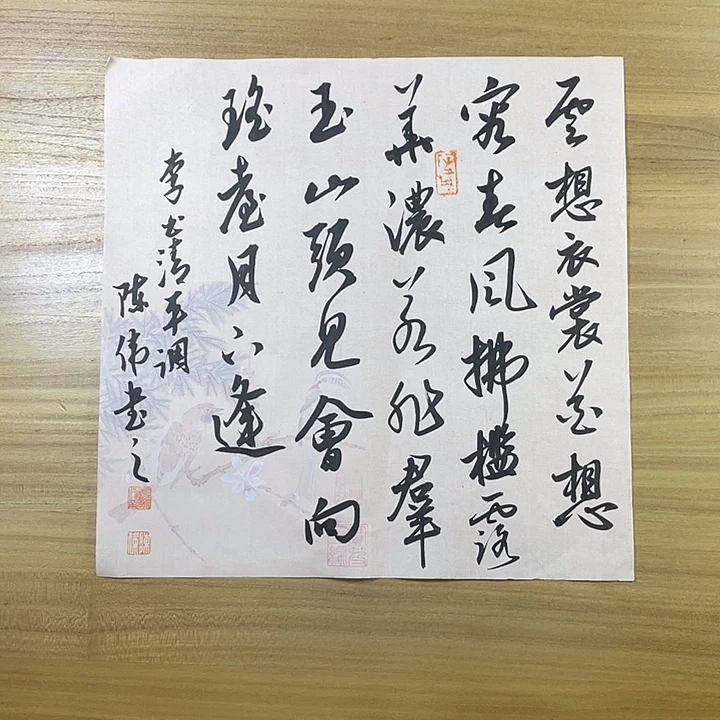 雲想衣裳花想
容春風拂檻露
華濃若非羣
玉山頭見會向
瑤臺月下逢
李白清平调
陈伟書之